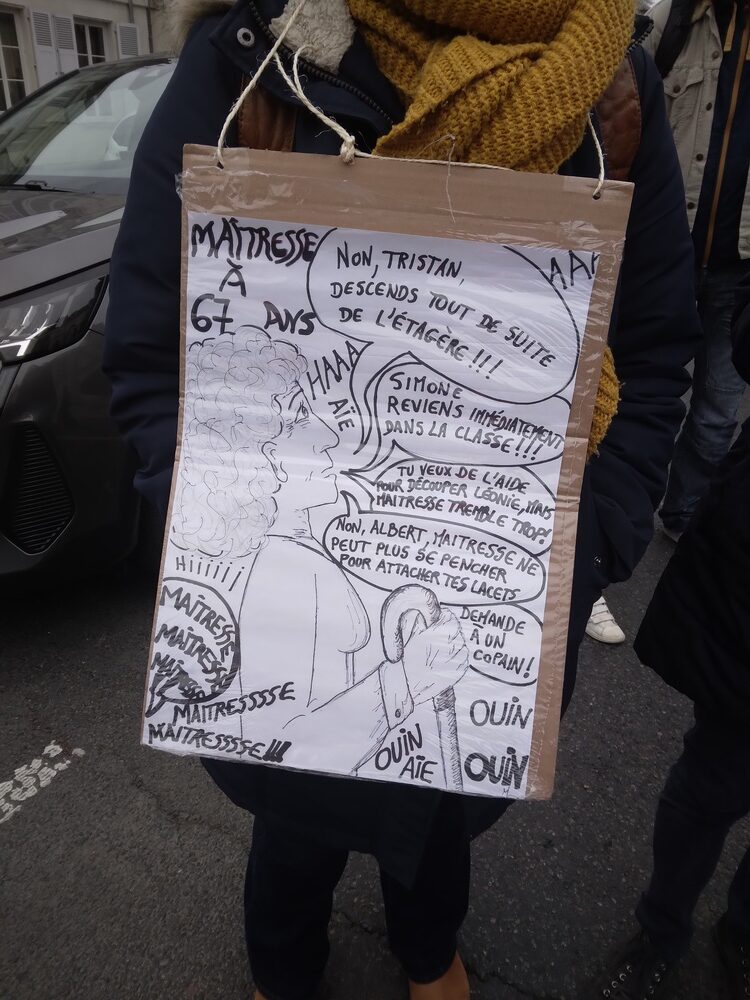 MAÎTRESSE
À
67 ANS
NON, TRISTAN,
DESCENDS TOUT DE SUITE
DE L'ÉTAGÈRE!!!
HAAA
AÏE
SIMONE
REVIENS IMMÉDIATEMENT
DANS LA CLASSE!!!
TU VEUX DE L'AIDE
POUR DÉCOUPER LÉONIE, MAIS
MAITRESSE TREMBLE TROP!
NON, ALBERT, MAITRESSE NE
PEUT PLUS SE PENCHER
POUR ATTACHER TES LACETS
DEMANDE
À UN
COPAIN!
HiiiiiI
MAÎTRESSE
MAÎTRESSE
MAÎTRESSE
MAÎTRESSSSE
MAÎTRESSSSE!!!
OUIN
AÏE
OUIN
OUIN